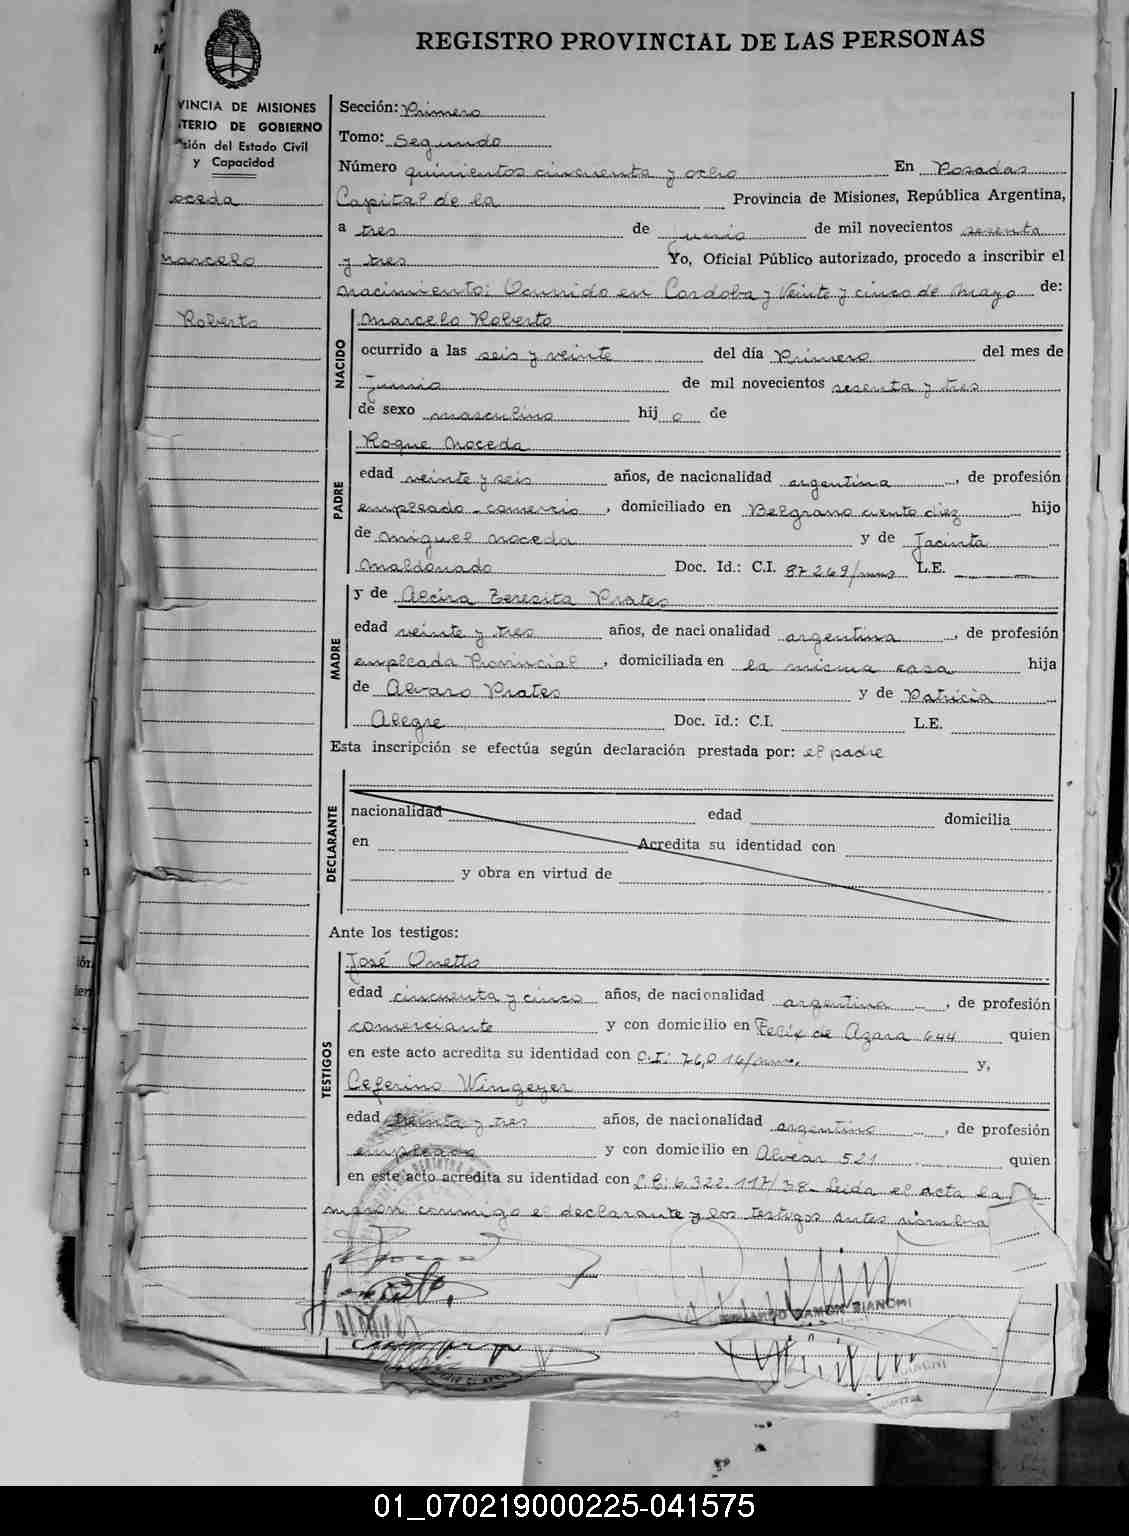 REGISTRO PROVINCIAL DE LAS PERSONAS
VINCIA DE MISIONES
TERIO DE GOBIERNO
ción del Estado Civil
y Capacidad
oceda
Marcelo
Roberto
Sección: Primero
Tomo: Segundo
Número quinientos cincuenta y ocho En Posadas
Capital de la Provincia de Misiones, República Argentina,
a tres de junio de mil novecientos sesenta
y tres Yo, Oficial Público autorizado, procedo a inscribir el
nacimiento: Ocurrido en Cordoba y Veinte y cinco de Mayo de:
NACIDO
Marcelo Roberto
ocurrido a las seis y veinte del día Primero del mes de
Junio de mil novecientos sesenta y tres
de sexo masculino hij o de
PADRE
Roque Noceda
edad veinte y seis años, de nacionalidad argentina, de profesión
empleado-comercio, domiciliado en Belgrano ciento diez hijo
de Miguel Noceda y de Jacinta
Maldonado Doc. Id.: C.I. 87269/mnes L.E.
MADRE
y de Alcira Teresita Prates
edad veinte y tres años, de nacionalidad argentina, de profesión
empleada Provincial, domiciliada en la misma casa hija
de Alvaro Prates y de Patricia
Alegre Doc. Id.: C.I. L.E.
Esta inscripción se efectúa según declaración prestada por: el padre
DECLARANTE
nacionalidad edad domicilia
en Acredita su identidad con
y obra en virtud de
Ante los testigos:
TESTIGOS
José Onetto
edad cincuenta y cinco años, de nacionalidad argentina, de profesión
comerciante y con domicilio en Felix de Azara 644 quien
en este acto acredita su identidad con C.I: 76,016/mnes. y,
Ceferino Wingeyer
edad treinta y tres años, de nacionalidad argentino, de profesión
empleado y con domicilio en Alvear 521 quien
en este acto acredita su identidad con L.E: 6.322.117/38- Leida el acta la
maron conmigo el declarante y los testigos antes nombra
RAMON BIANCHI
01_070219000225-041575